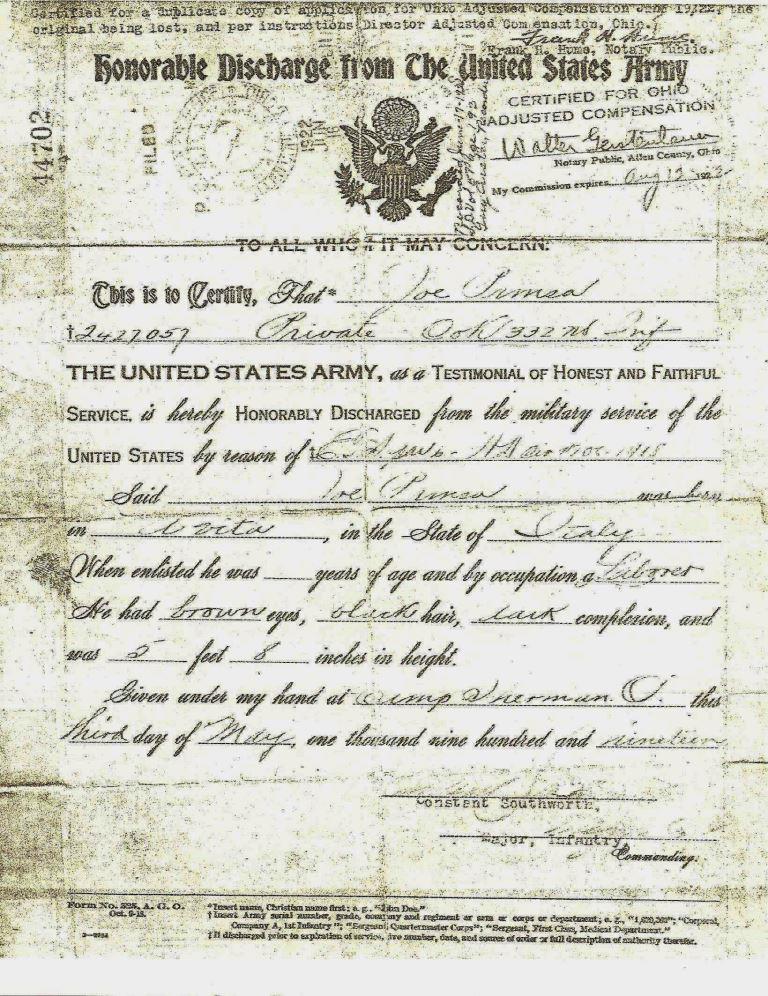 Certified for a duplicate copy of application for Ohio Adjusted Compensation June 19/22, the
original being lost, and per instructions Director Adjusted Compensation, Ohio.
Frank H. Hume.
Frank H. Hume, Notary Public.
Honorable Discharge from The United States Army
44702
FILED
1922
JUN
CERTIFIED FOR OHIO
ADJUSTED COMPENSATION
Walter
Notary Public, Allen County, Ohio
My Commission expires Aug 12 192
TO ALL WHOM IT MAY CONCERN:
This is to Certify, That* Joe
†2427057 Private Co K 332nd Inf
THE UNITED STATES ARMY, as a TESTIMONIAL OF HONEST AND FAITHFUL
SERVICE, is hereby HONORABLY DISCHARGED from the military service of the
UNITED STATES by reason of ‡
Said Joe was born
in , in the State of Italy
When enlisted he was years of age and by occupation a Laborer
He had brown eyes, black hair, dark complexion, and
was 5 feet 8 inches in height.
Given under my hand at Camp Sherman O. this
third day of May, one thousand nine hundred and nineteen
Constant Southworth,
Major, Infantry
Commanding.
Form No. 525, A. G. O.
Oct. 9-18.
*Insert name, Christian name first; e. g., "John Doe."
†Insert Army serial number, grade, company and regiment or arm or corps or department; e. g., "1,620,302"; "Corporal,
Company A, 1st Infantry"; "Sergeant, Quartermaster Corps"; "Sergeant, First Class, Medical Department."
‡If discharged prior to expiration of service, give number, date, and source of order or full description of authority therefor.